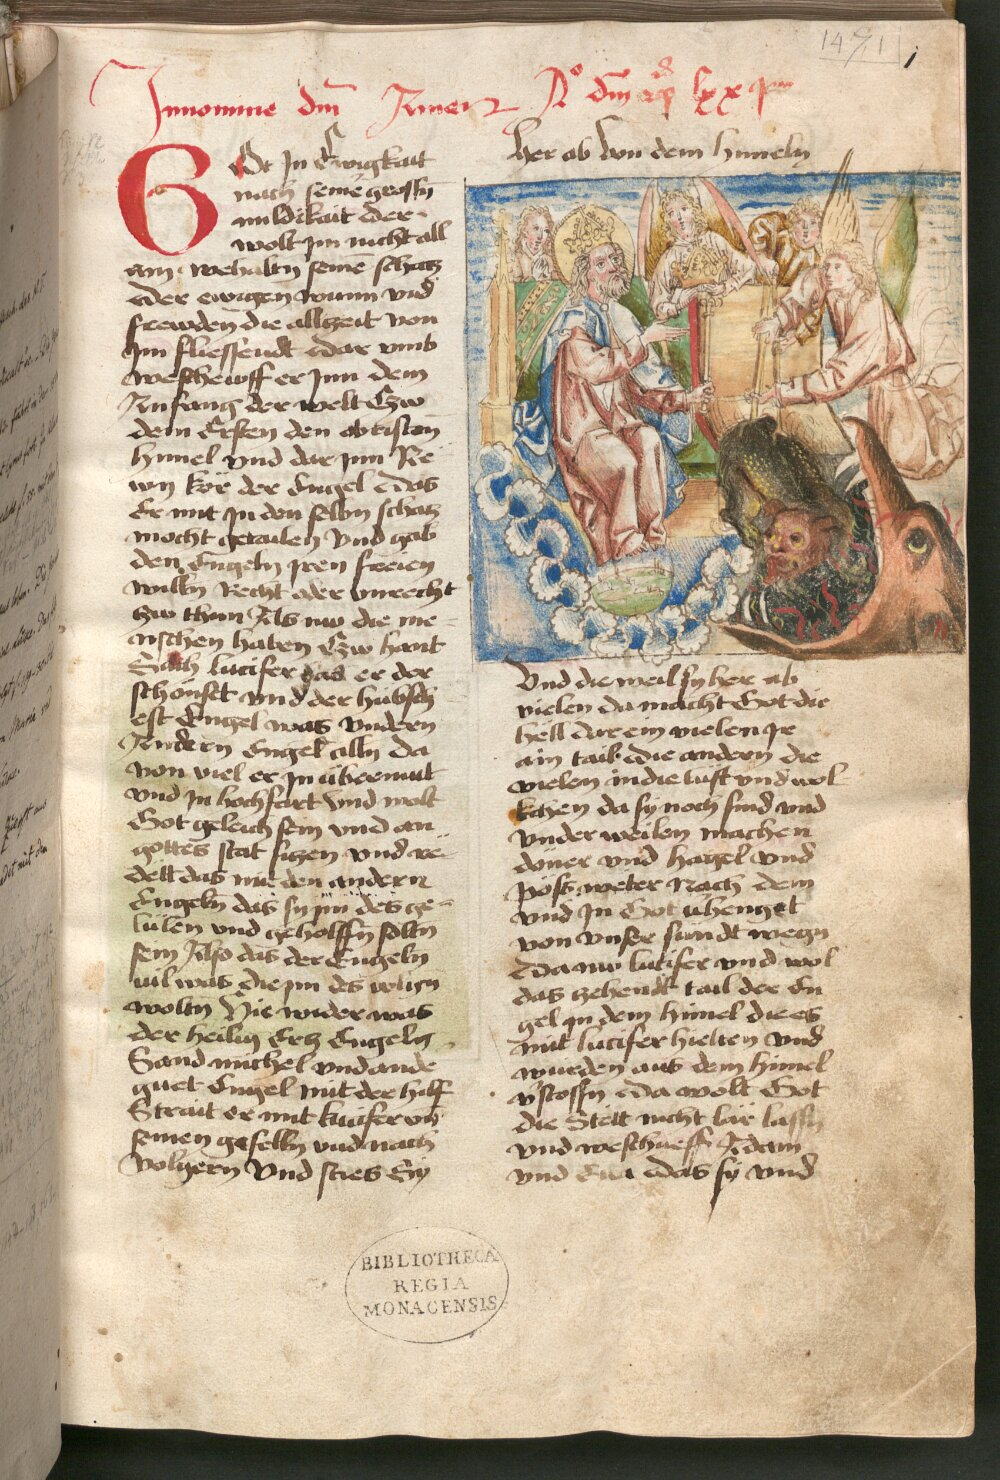 1471
1
Innomine dm̄ Amen A° dm̄ lxxp
Got In Ewigkait
nach seīe grossn
mildikait der
wolt jm nicht all
ain wehaltn seinē schatz
der ewigen wunn vnd
frewden die allzeit von
Im fliessendt dar vmb
weschueff er jnn dem
Anfang der welt Czw
dem Ersten den obristen
himel vnd dar jnn Ne
wn kör der Engel das
Er mit jn den selbn schatz
mocht getailen vnd gab
den Engeln jren freien
willn Recht oder vnrecht
zw thun Als nw die me
nschen haben Czw hant
Sach lucifer das er der
schönset vnd der hubsch
est Engel was vndern
Andern Engel alln da
von viel er jn übermut
vnd jn hochfart vnd wolt
Got geleich sein vnd an
gottes stat siczen vnd re
dett das mit den andern
Engeln das sy jm des ge
lüben vnd geholffn soltn
sein Also das der Engeln
vil was die jm des volign
woltn Hie wider was
der heilig Ercz Engelg
Sand michel vnd ande
guet Engel mit der hilf
Strait er mit lucifer vn̄
seinen geselln vnd nach
volgern vnd sties Sy
her ab von dem himeln
vnd die weil sy her ab
vielen da macht Got die
hell dar ein vielen Jr
ain tail die andern die
vielen in die luft vnd wol
kchen da sy noch sind vnd
vnder weilen machen
doner vnd hagel vnd
pöss weter Nach dem
vnd Jn Got übenget
von vnser sundt wegn
Da nw lucifer vnd wol
das zehendt tail der En
gel jn dem himel die es
mit lucifer hielten vnd
wurden aus dem himel
v̄stossn da wolt Got
die Stett nicht lär lassn
vnd weschueff Adam
vnd Eua das sy vnd
BIBLIOTHECA
REGIA
MONACENSIS